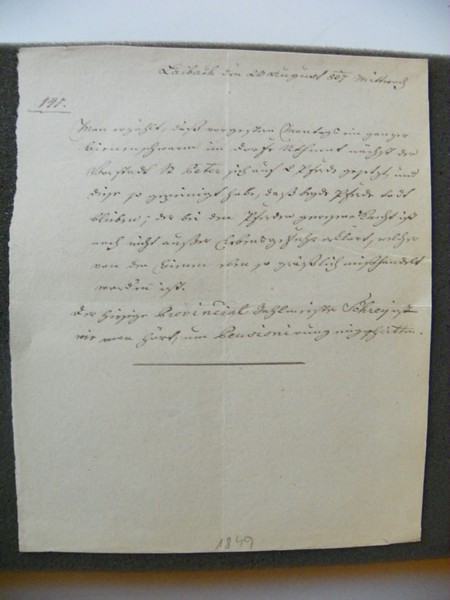 Laibach den 23 August 847 Mittwoch
191.
Man erzählt, daß vorgestern Montags ein ganzer
Bienenschwarm im Dorfe nächst der
Vorstadt St Peter sich auf 2 Pferde gesetzt, und
diese so gepeinigt habe, daß beyde Pferde todt
blieben; der bei den Pferden gewesene Knecht ist
noch nicht außer Lebensgefahr erklärt, welcher
von den Bienen eben so gräßlich mißhandelt
worden ist.
Der hiesige Provincial Zahlmeister Schrey ist
wie man hört, um Pensionirung eingeschritten.
1849